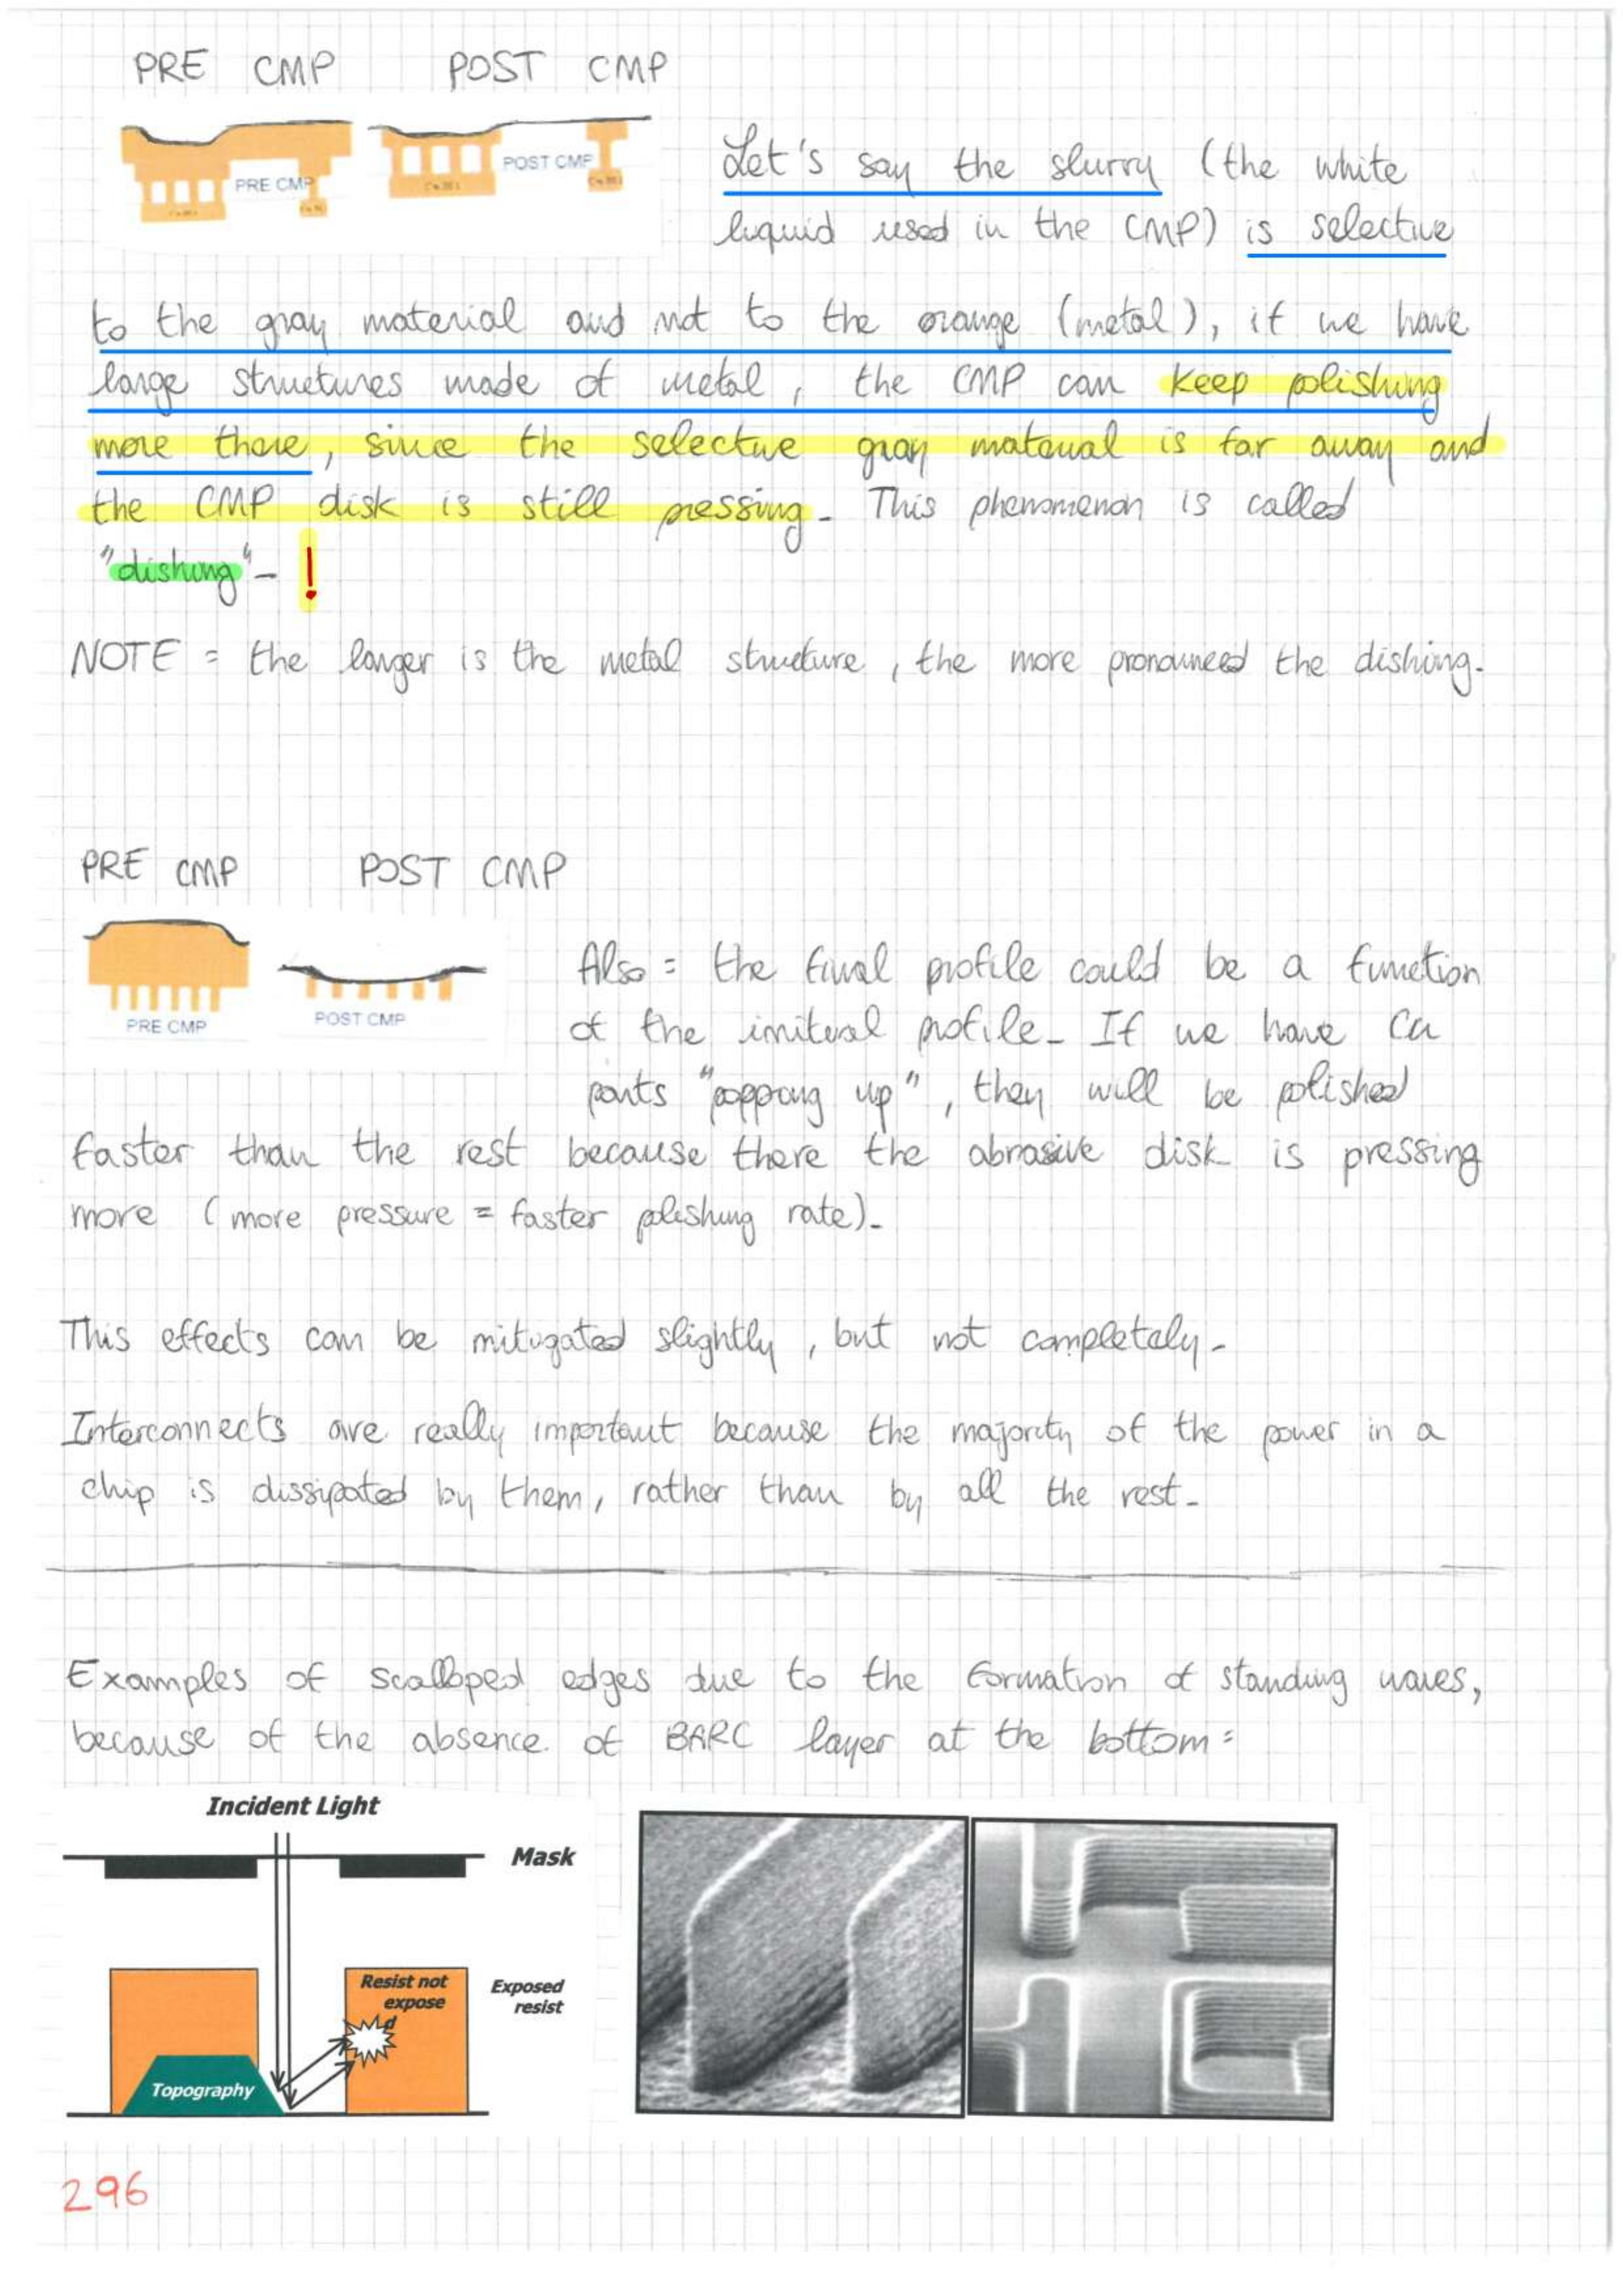 PRE CMP POST CMP
PRE CMP
POST CMP
Let's say the slurry (the white
liquid used in the CMP) is selective
to the gray material and not to the orange (metal), if we have
large structures made of metal, the CMP can keep polishing
more there, since the selective gray material is far away and
the CMP disk is still pressing. This phenomenon is called
"dishing". !
NOTE = the larger is the metal structure, the more pronounced the dishing.
PRE CMP POST CMP
PRE CMP
POST CMP
Also = the final profile could be a function
of the initial profile. If we have Cu
parts "popping up", they will be polished
faster than the rest because there the abrasive disk is pressing
more (more pressure = faster polishing rate).
This effects can be mitigated slightly, but not completely.
Interconnects are really important because the majority of the power in a
chip is dissipated by them, rather than by all the rest.
Examples of scalloped edges due to the formation of standing waves,
because of the absence of BARC layer at the bottom =
Incident Light
Mask
Resist not
expose
d
Exposed
resist
Topography
296